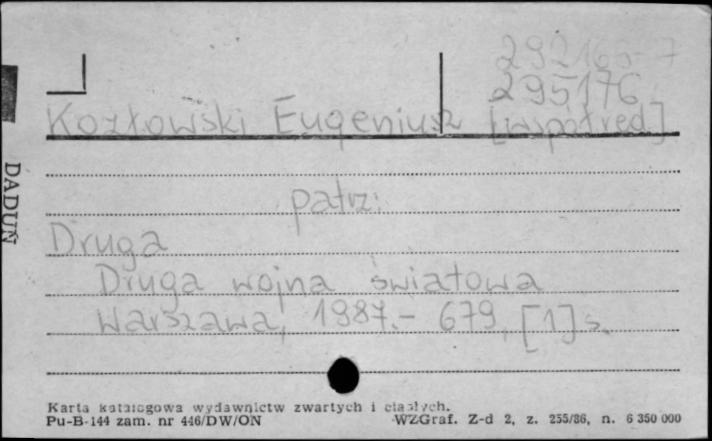 292165-7
295176
Kozłowski Eugeniusz [współred.]
patrz:
Druga
Druga wojna światowa
Warszawa, 1987.- 679, [1] s.
Karta katalogowa wydawnictw zwartych i ciągłych.
Pu-B-144 zam. nr 446/DW/ON WZGraf. Z-d 2, z. 255/86, n. 6 350 000
DADUŃ